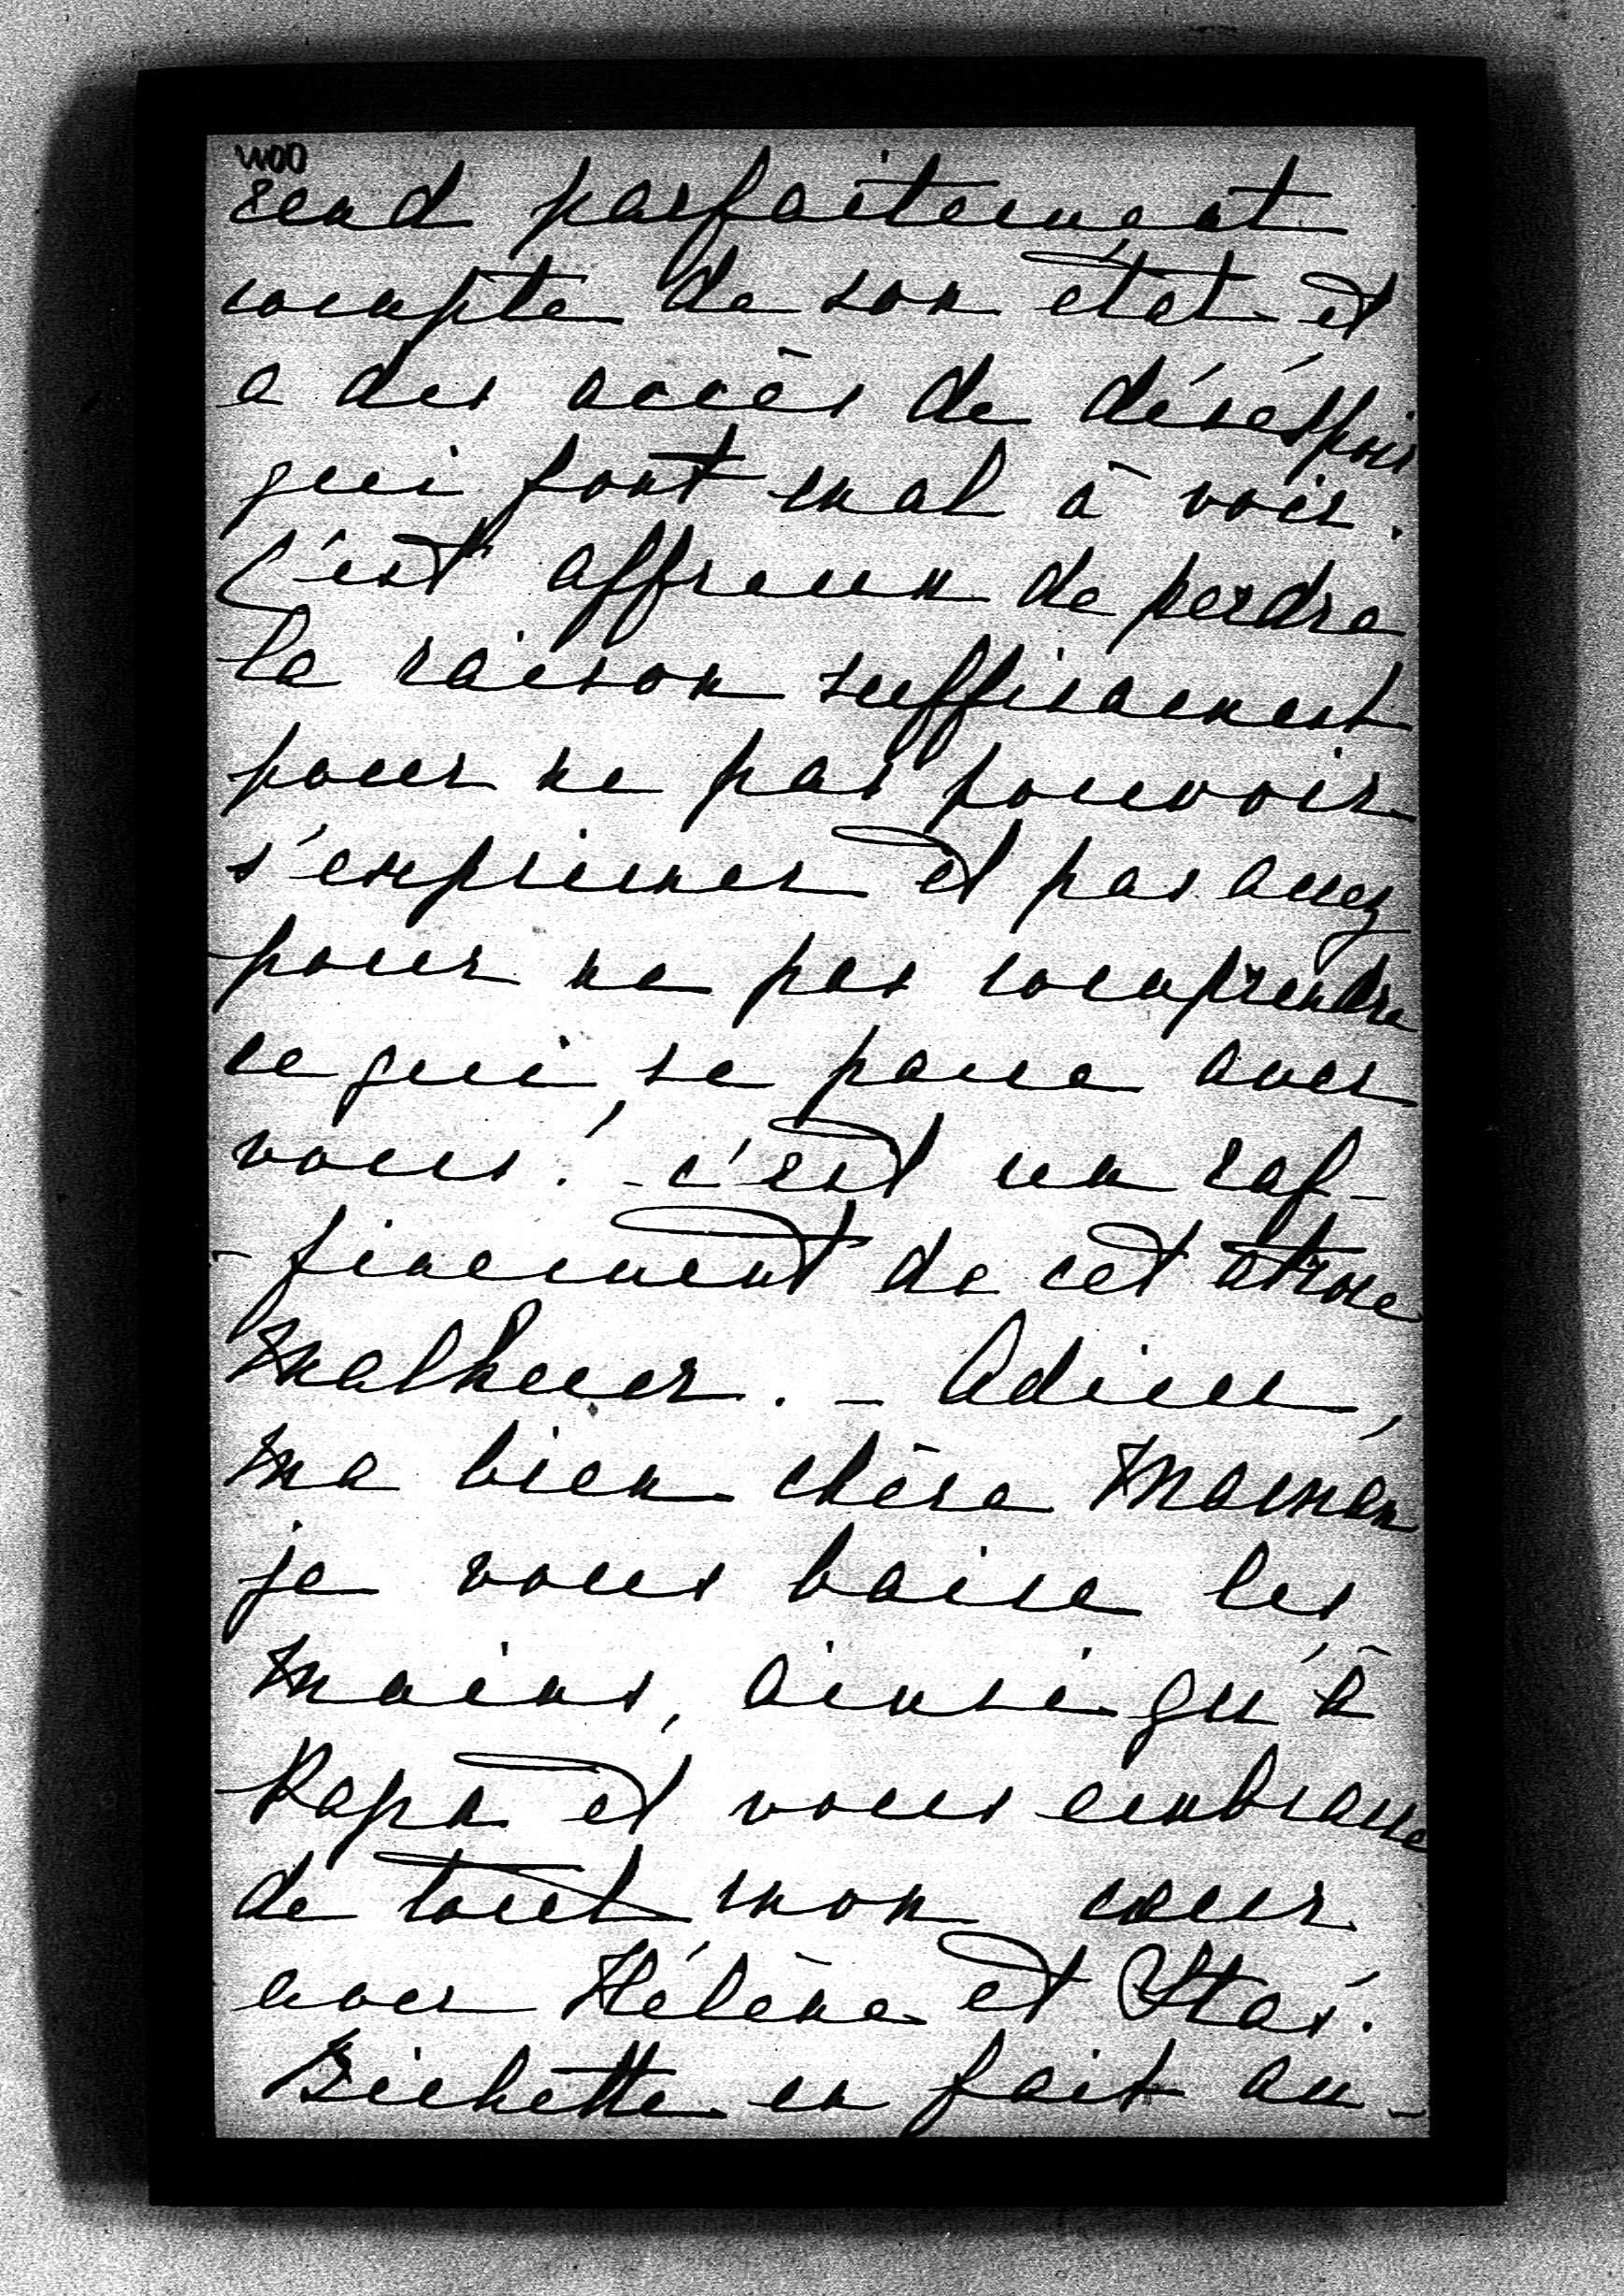 WOO
rend parfaitement
compte de son état et
a des accès de désespoir
qui font mal à voir.
C'est affreux de perdre
la raison suffisament
pour ne pas pouvoir
s'exprimer et pas assez
pour ne pas comprendre
ce qui se passe avec
vous! - c'est un raf-
- finement de cet atroce
malheur. - Adieu,
ma bien chère Maman
je vous baise les
mains, ainsi qu'à
Papa et vous embrasse
de tout mon cœur
avec Hélène et Stas.
Bichette en fait au-